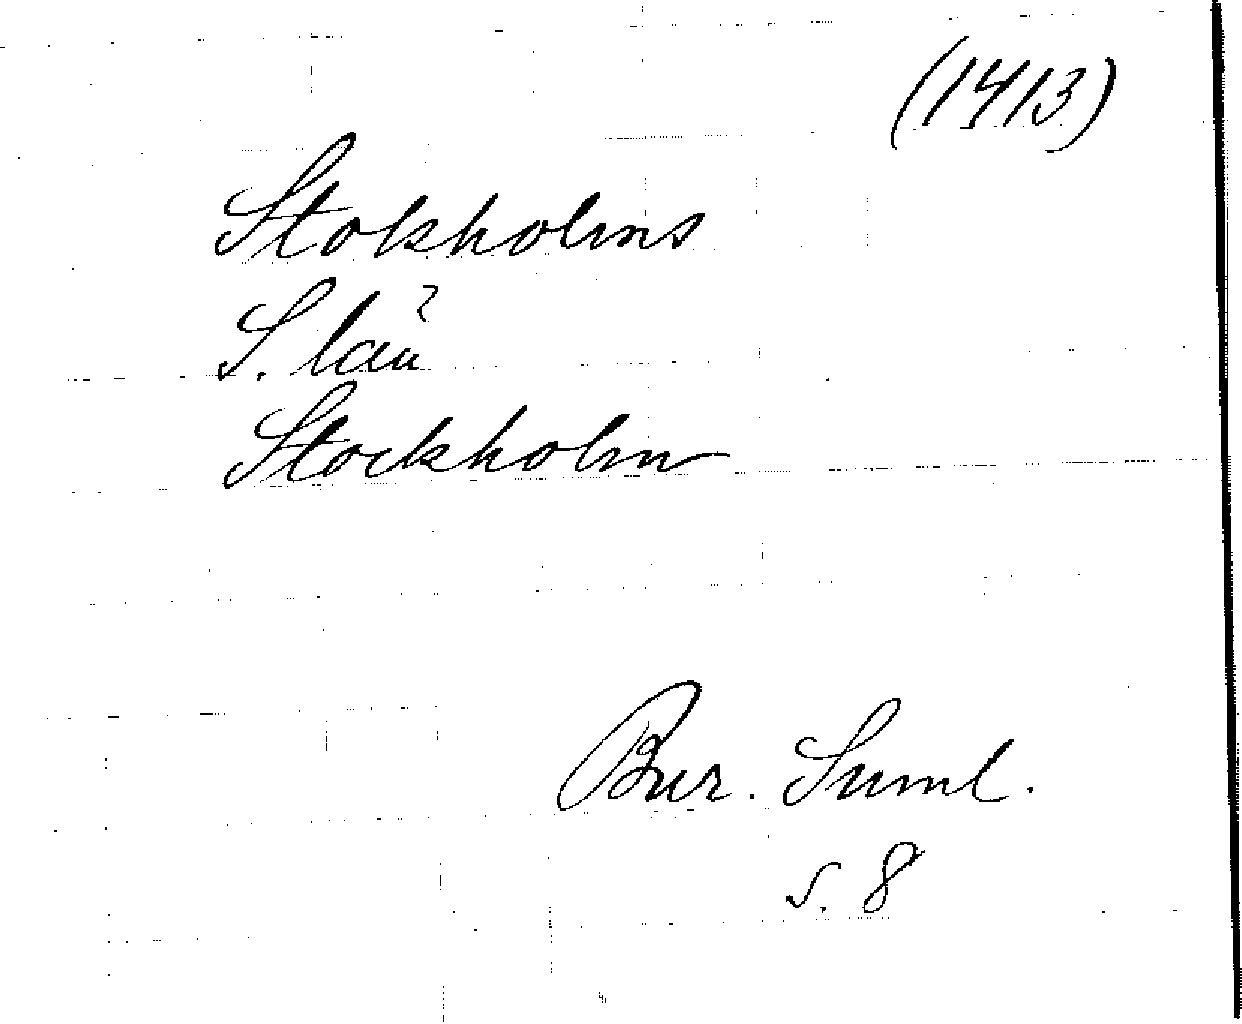 (1413)
Stokholms
S. län ?
Stockholm
Bur. Suml.
s. 8